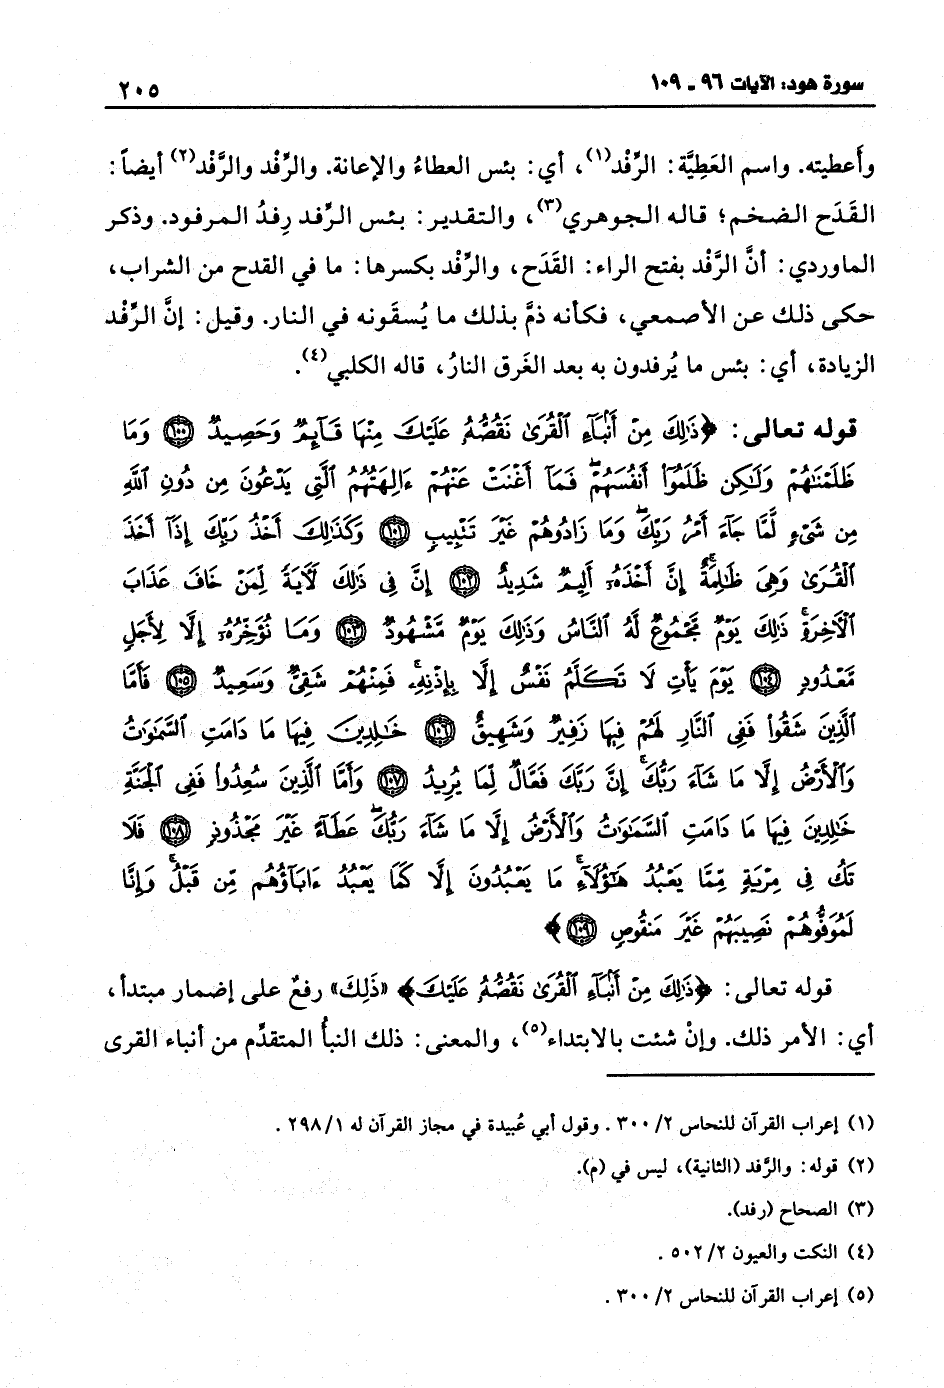 سورة هود: الآيات ٩٦ - ١٠٩
٢٠٥
وأعطيته. واسم العَطِيَّة: الرِّفْد(١)، أي: بئس العطاءُ والإعانة. والرِّفْد والرَّفْد(٢) أيضاً:
القَدَح الضخم؛ قاله الجوهري(٣)، والتقدير: بئس الرِّفد رِفدُ المرفود. وذكر
الماوردي: أنَّ الرَّفْد بفتح الراء: القَدَح، والرِّفْد بكسرها: ما في القدح من الشراب،
حكى ذلك عن الأصمعي، فكأنه ذمَّ بذلك ما يُسقَونه في النار. وقيل: إنَّ الرِّفْد
الزيادة، أي: بئس ما يُرفدون به بعد الغَرق النارُ، قاله الكلبي(٤).
قوله تعالى: ﴿ذَٰلِكَ مِنْ أَنۢبَآءِ ٱلْقُرَىٰ نَقُصُّهُۥ عَلَيْكَ مِنْهَا قَآئِمٌ وَحَصِيدٌ ۝١٠٠ وَمَا
ظَلَمْنَٰهُمْ وَلَٰكِن ظَلَمُوٓا۟ أَنفُسَهُمْ ۖ فَمَآ أَغْنَتْ عَنْهُمْ ءَالِهَتُهُمُ ٱلَّتِى يَدْعُونَ مِن دُونِ ٱللَّهِ
مِن شَىْءٍ لَّمَّا جَآءَ أَمْرُ رَبِّكَ ۖ وَمَا زَادُوهُمْ غَيْرَ تَتْبِيبٍ ۝١٠١ وَكَذَٰلِكَ أَخْذُ رَبِّكَ إِذَآ أَخَذَ
ٱلْقُرَىٰ وَهِىَ ظَٰلِمَةٌ ۚ إِنَّ أَخْذَهُۥٓ أَلِيمٌ شَدِيدٌ ۝١٠٢ إِنَّ فِى ذَٰلِكَ لَءَايَةً لِّمَنْ خَافَ عَذَابَ
ٱلْءَاخِرَةِ ۚ ذَٰلِكَ يَوْمٌ مَّجْمُوعٌ لَّهُ ٱلنَّاسُ وَذَٰلِكَ يَوْمٌ مَّشْهُودٌ ۝١٠٣ وَمَا نُؤَخِّرُهُۥٓ إِلَّا لِأَجَلٍ
مَّعْدُودٍ ۝١٠٤ يَوْمَ يَأْتِ لَا تَكَلَّمُ نَفْسٌ إِلَّا بِإِذْنِهِۦ ۚ فَمِنْهُمْ شَقِىٌّ وَسَعِيدٌ ۝١٠٥ فَأَمَّا
ٱلَّذِينَ شَقُوا۟ فَفِى ٱلنَّارِ لَهُمْ فِيهَا زَفِيرٌ وَشَهِيقٌ ۝١٠٦ خَٰلِدِينَ فِيهَا مَا دَامَتِ ٱلسَّمَٰوَٰتُ
وَٱلْأَرْضُ إِلَّا مَا شَآءَ رَبُّكَ ۚ إِنَّ رَبَّكَ فَعَّالٌ لِّمَا يُرِيدُ ۝١٠٧ وَأَمَّا ٱلَّذِينَ سُعِدُوا۟ فَفِى ٱلْجَنَّةِ
خَٰلِدِينَ فِيهَا مَا دَامَتِ ٱلسَّمَٰوَٰتُ وَٱلْأَرْضُ إِلَّا مَا شَآءَ رَبُّكَ ۖ عَطَآءً غَيْرَ مَجْذُوذٍ ۝١٠٨ فَلَا
تَكُ فِى مِرْيَةٍ مِّمَّا يَعْبُدُ هَٰٓؤُلَآءِ ۚ مَا يَعْبُدُونَ إِلَّا كَمَا يَعْبُدُ ءَابَآؤُهُم مِّن قَبْلُ ۚ وَإِنَّا
لَمُوَفُّوهُمْ نَصِيبَهُمْ غَيْرَ مَنقُوصٍ ۝١٠٩﴾
قوله تعالى: ﴿ذَٰلِكَ مِنْ أَنۢبَآءِ ٱلْقُرَىٰ نَقُصُّهُۥ عَلَيْكَ﴾ «ذَلِكَ» رفعٌ على إضمار مبتدأ،
أي: الأمر ذلك. وإنْ شئت بالابتداء(٥)، والمعنى: ذلك النبأُ المتقدِّم من أنباء القرى
(١) إعراب القرآن للنحاس ٢/ ٣٠٠ . وقول أبي عُبيدة في مجاز القرآن له ١/ ٢٩٨ .
(٢) قوله: والرَّفد (الثانية)، ليس في (م).
(٣) الصحاح (رفد).
(٤) النكت والعيون ٢/ ٥٠٢ .
(٥) إعراب القرآن للنحاس ٢/ ٣٠٠ .